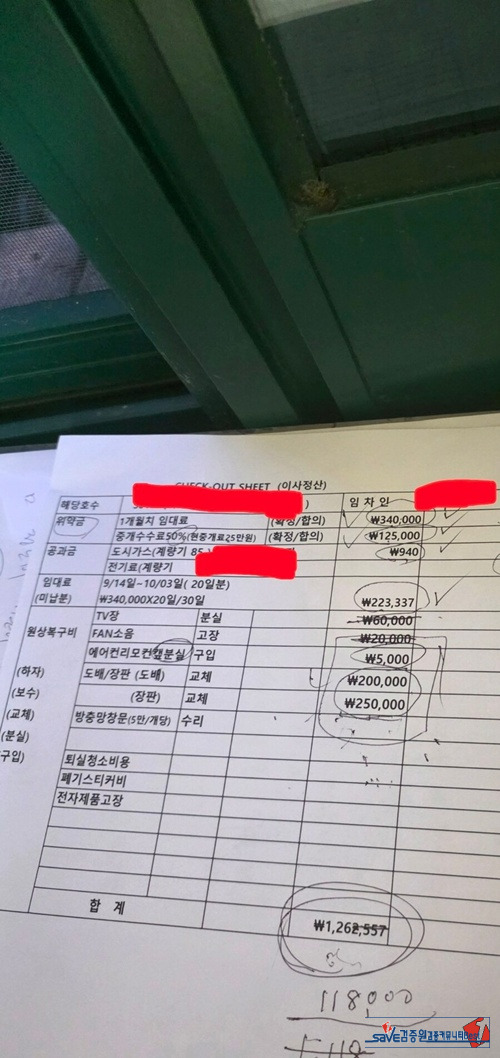 CHECK-OUT SHEET (이사정산)
해당호수 임 차 인
위약금 1개월치 임대료 (확정/합의) ₩340,000
중개수수료50%(현중개료25만원) (확정/합의) ₩125,000
공과금 도시가스(계량기 85 ₩940
전기료(계량기
임대료 9/14일~10/03일( 20일분)
(미납분) ₩340,000X20일/30일 ₩223,337
원상복구비 TV장 분실 ₩60,000
FAN소음 고장 ₩20,000
에어컨리모컨캡분실 구입 ₩5,000
(하자) 도배/장판 (도배) 교체 ₩200,000
(보수) (장판) 교체 ₩250,000
(교체) 방충망창문(5만/개당) 수리
(분실)
구입) 퇴실청소비용
폐기스티커비
전자제품고장
합 계 ₩1,262,557
118,000